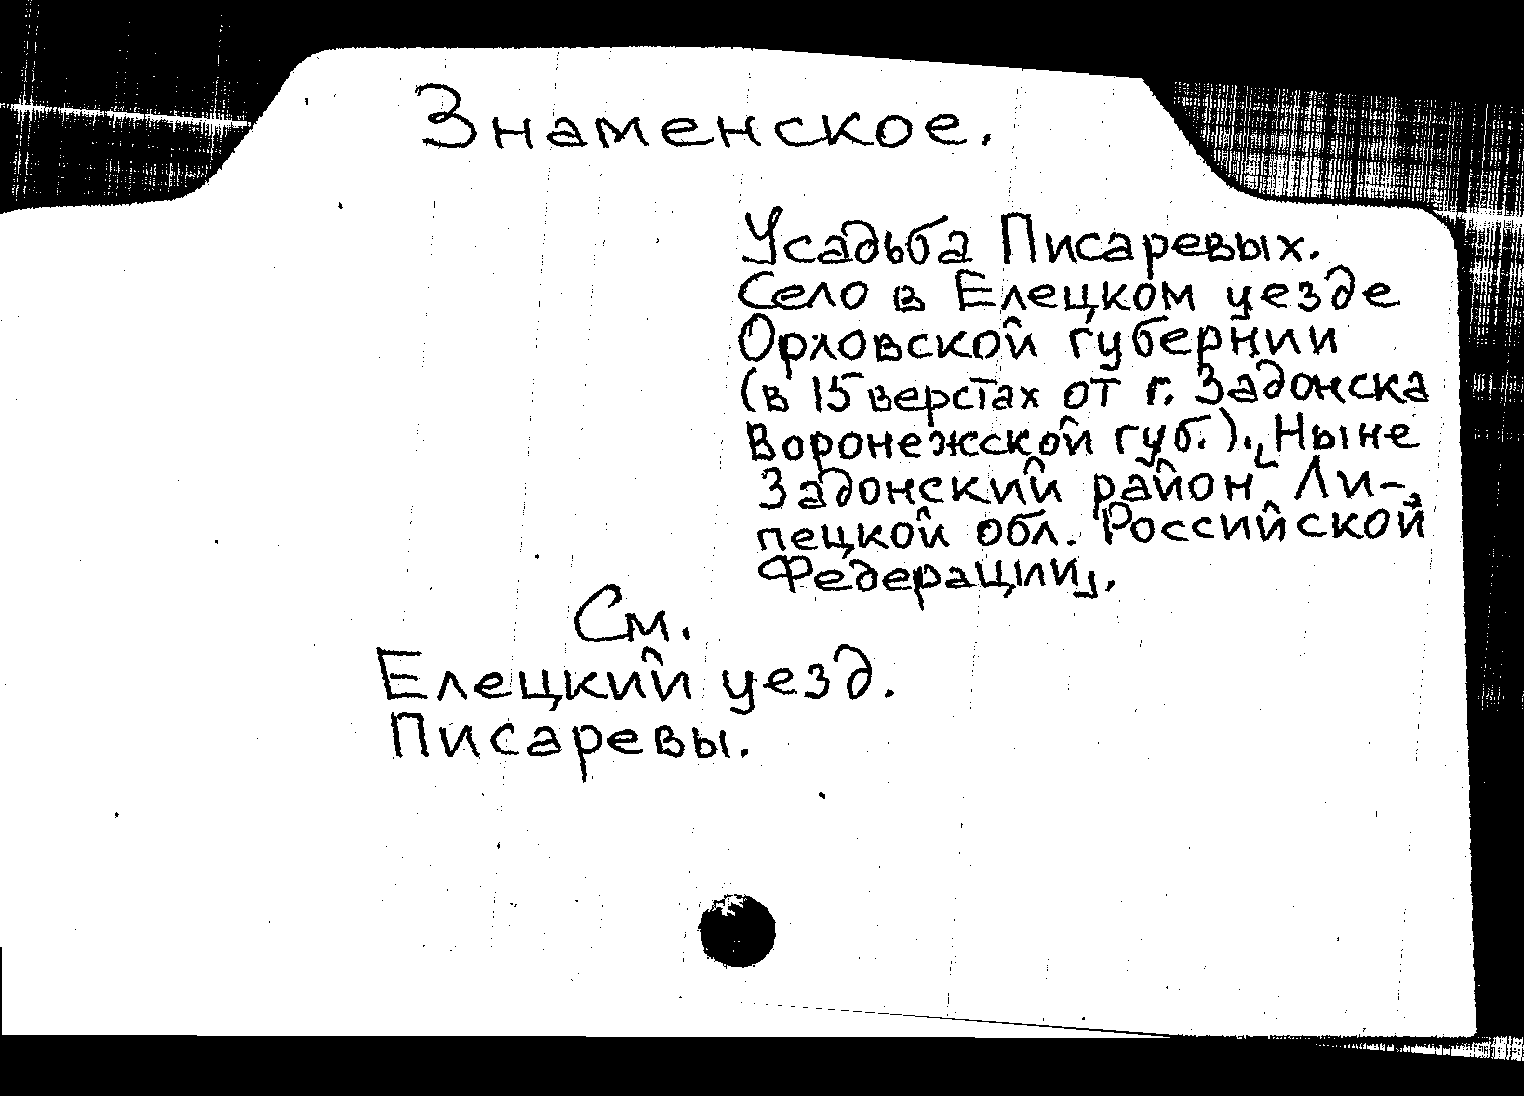 Знаменское.
Усадьба Писаревых.
Село в Елецком уезде
Орловской губернии
(в 15 верстах от г. Задонска
Воронежской губ.). ⌞Ныне
Задонский район Ли-
пецкой обл. Российской
Федерации⌟.
См.
Елецкий уезд.
Писаревы.